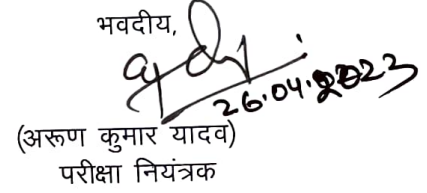 भवदीय,
26.04.2023
(अरूण कुमार यादव)
परीक्षा नियंत्रक